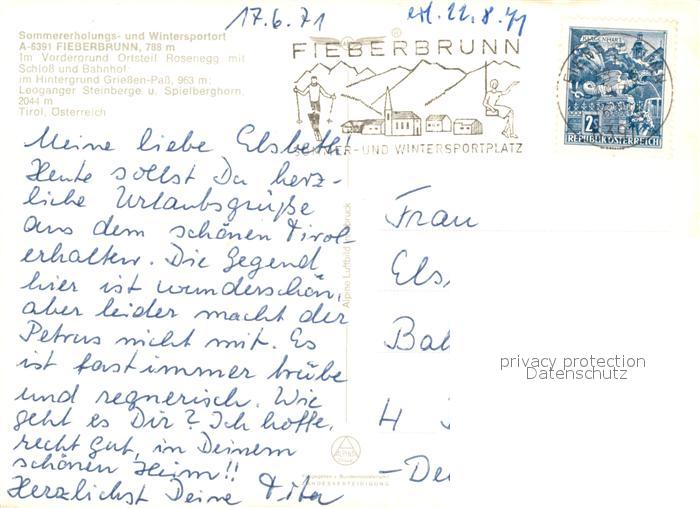 17.6.71
erl. 22.8.71
Sommererholungs- und Wintersportort
A-6391 FIEBERBRUNN, 788 m
Im Vordergrund Ortsteil Rosenegg mit
Schloß und Bahnhof;
im Hintergrund Grießen-Paß, 963 m;
Leoganger Steinberge u. Spielberghorn,
2044 m
Tirol, Österreich
FIEBERBRUNN
SOMMER-UND WINTERSPORTPLATZ
KLAGENFURT
2S
REPUBLIK ÖSTERREICH
Meine liebe Elsbeth
Heute sollst Du herz-
liche Urlaubsgrüße
aus dem schönen Tirol
erhalten. Die Gegend
hier ist wunderschön,
aber leider macht der
Petrus nicht mit. Es
ist fast immer trübe
und regnerisch. Wie
geht es Dir? Ich hoffe,
recht gut, in Deinem
schönen Heim!!
Herzlichst Deine Dita
Alpine Luftbild
ALPINE
LANDESVERTEIDIGUNG
Frau
Els
Bad
4
-De
privacy protection
Datenschutz